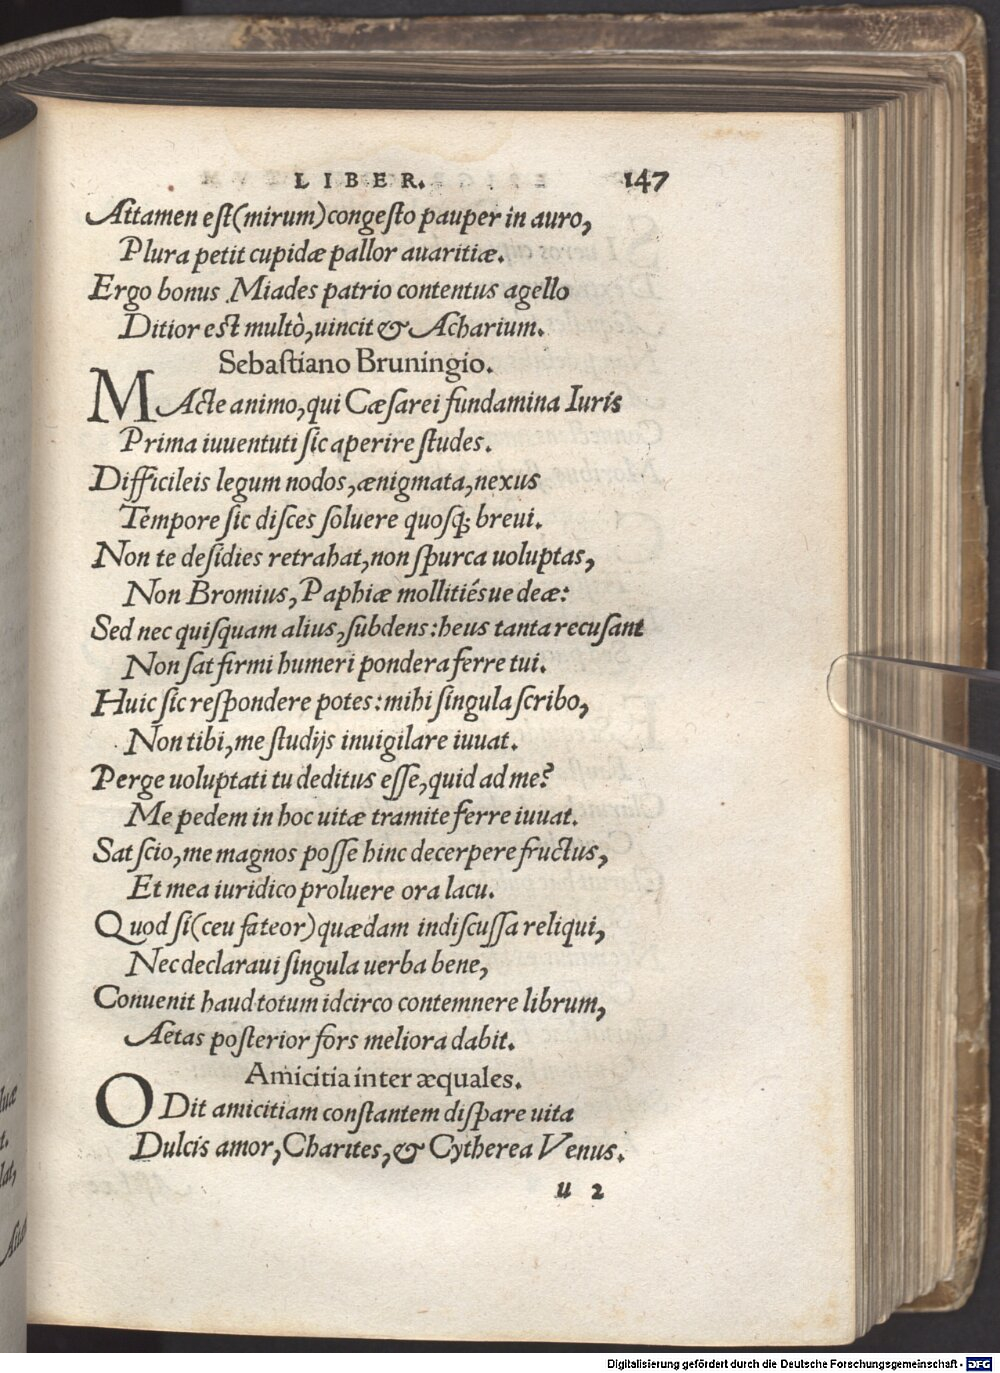 LIBER. 147
Attamen eſt(mirum)congeſto pauper in auro,
Plura petit cupidæ pallor auaritiæ.
Ergo bonus Miades patrio contentus agello
Ditior eſt multò,uincit & Acharium.
Sebaſtiano Bruningio.
MActe animo,qui Cæſarei fundamina Iuris
Prima iuuentuti ſic aperire ſtudes.
Difficileis legum nodos,ænigmata,nexus
Tempore ſic diſces ſoluere quoſq; breui.
Non te deſidies retrahat,non ſpurca uoluptas,
Non Bromius,Paphiæ mollitiésue deæ:
Sed nec quiſquam alius,ſubdens:heus tanta recuſant
Non ſat firmi humeri pondera ferre tui.
Huic ſic reſpondere potes:mihi ſingula ſcribo,
Non tibi,me ſtudijs inuigilare iuuat.
Perge uoluptati tu deditus eſſe,quid ad me?
Me pedem in hoc uitæ tramite ferre iuuat.
Sat ſcio,me magnos poſſe hinc decerpere fructus,
Et mea iuridico proluere ora lacu.
Quod ſi(ceu fateor)quædam indiſcuſſa reliqui,
Nec declaraui ſingula uerba bene,
Conuenit haud totum idcirco contemnere librum,
Aetas poſterior fors meliora dabit.
Amicitia inter æquales.
ODit amicitiam conſtantem diſpare uita
Dulcis amor,Charites,& Cytherea Venus.
u 2
Digitalisierung gefördert durch die Deutsche Forschungsgemeinschaft - DFG